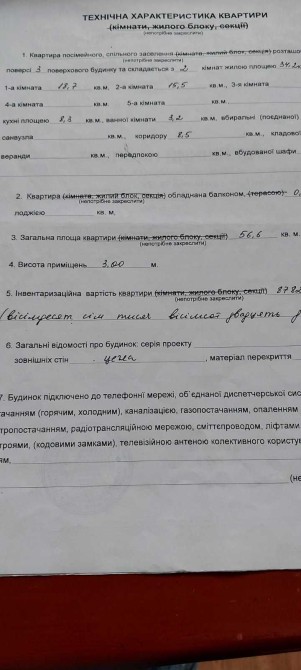 ТЕХНІЧНА ХАРАКТЕРИСТИКА КВАРТИРИ
(кімнати, жилого блоку, секції)
(непотрібне закреслити)
1. Квартира посімейного, спільного заселення (кімнати, жилий блок, секція) розташо
(непотрібне закреслити)
поверсі 3 поверхового будинку та складається з 2 кімнат жилою площею 34,2
1-а кімната 18,7 кв.м, 2-а кімната 15,5 кв.м., 3-я кімната
4-а кімната кв.м. 5-а кімната кв.м.
кухні площею 8,3 кв.м., ванної кімнати 3,2 кв.м, вбиральні (поєднаної)
санвузла кв.м., коридору 8,5 кв.м., кладової
веранди кв.м., передпокою кв.м., вбудованої шафи
2. Квартира (кімната, жилий блок, секція) обладнана балконом, (терасою) 0,
(непотрібне закреслити)
лоджією кв. м.
3. Загальна площа квартири (кімнати, жилого блоку, секції) 56,6 кв. м.
(непотрібне закреслити)
4. Висота приміщень 3.00 м.
5. Інвентаризаційна вартість квартири (кімнати, жилого блоку, секції) 878
(непотрібне закреслити)
(вісімдесят сім тисяч вісімсот двадцять
6. Загальні відомості про будинок: серія проекту
зовнішніх стін цегла, матеріал перекриття
7. Будинок підключено до телефонні мережі, об'єднаної диспетчерської сис
тачанням (горячим, холодним), каналізацією, газопостачанням, опаленням
тропостачанням, радіотрансляційною мережою, сміттєпроводом, ліфтами
троями, (кодовими замками), телевізійною антеною колективного користу
ям,
(не